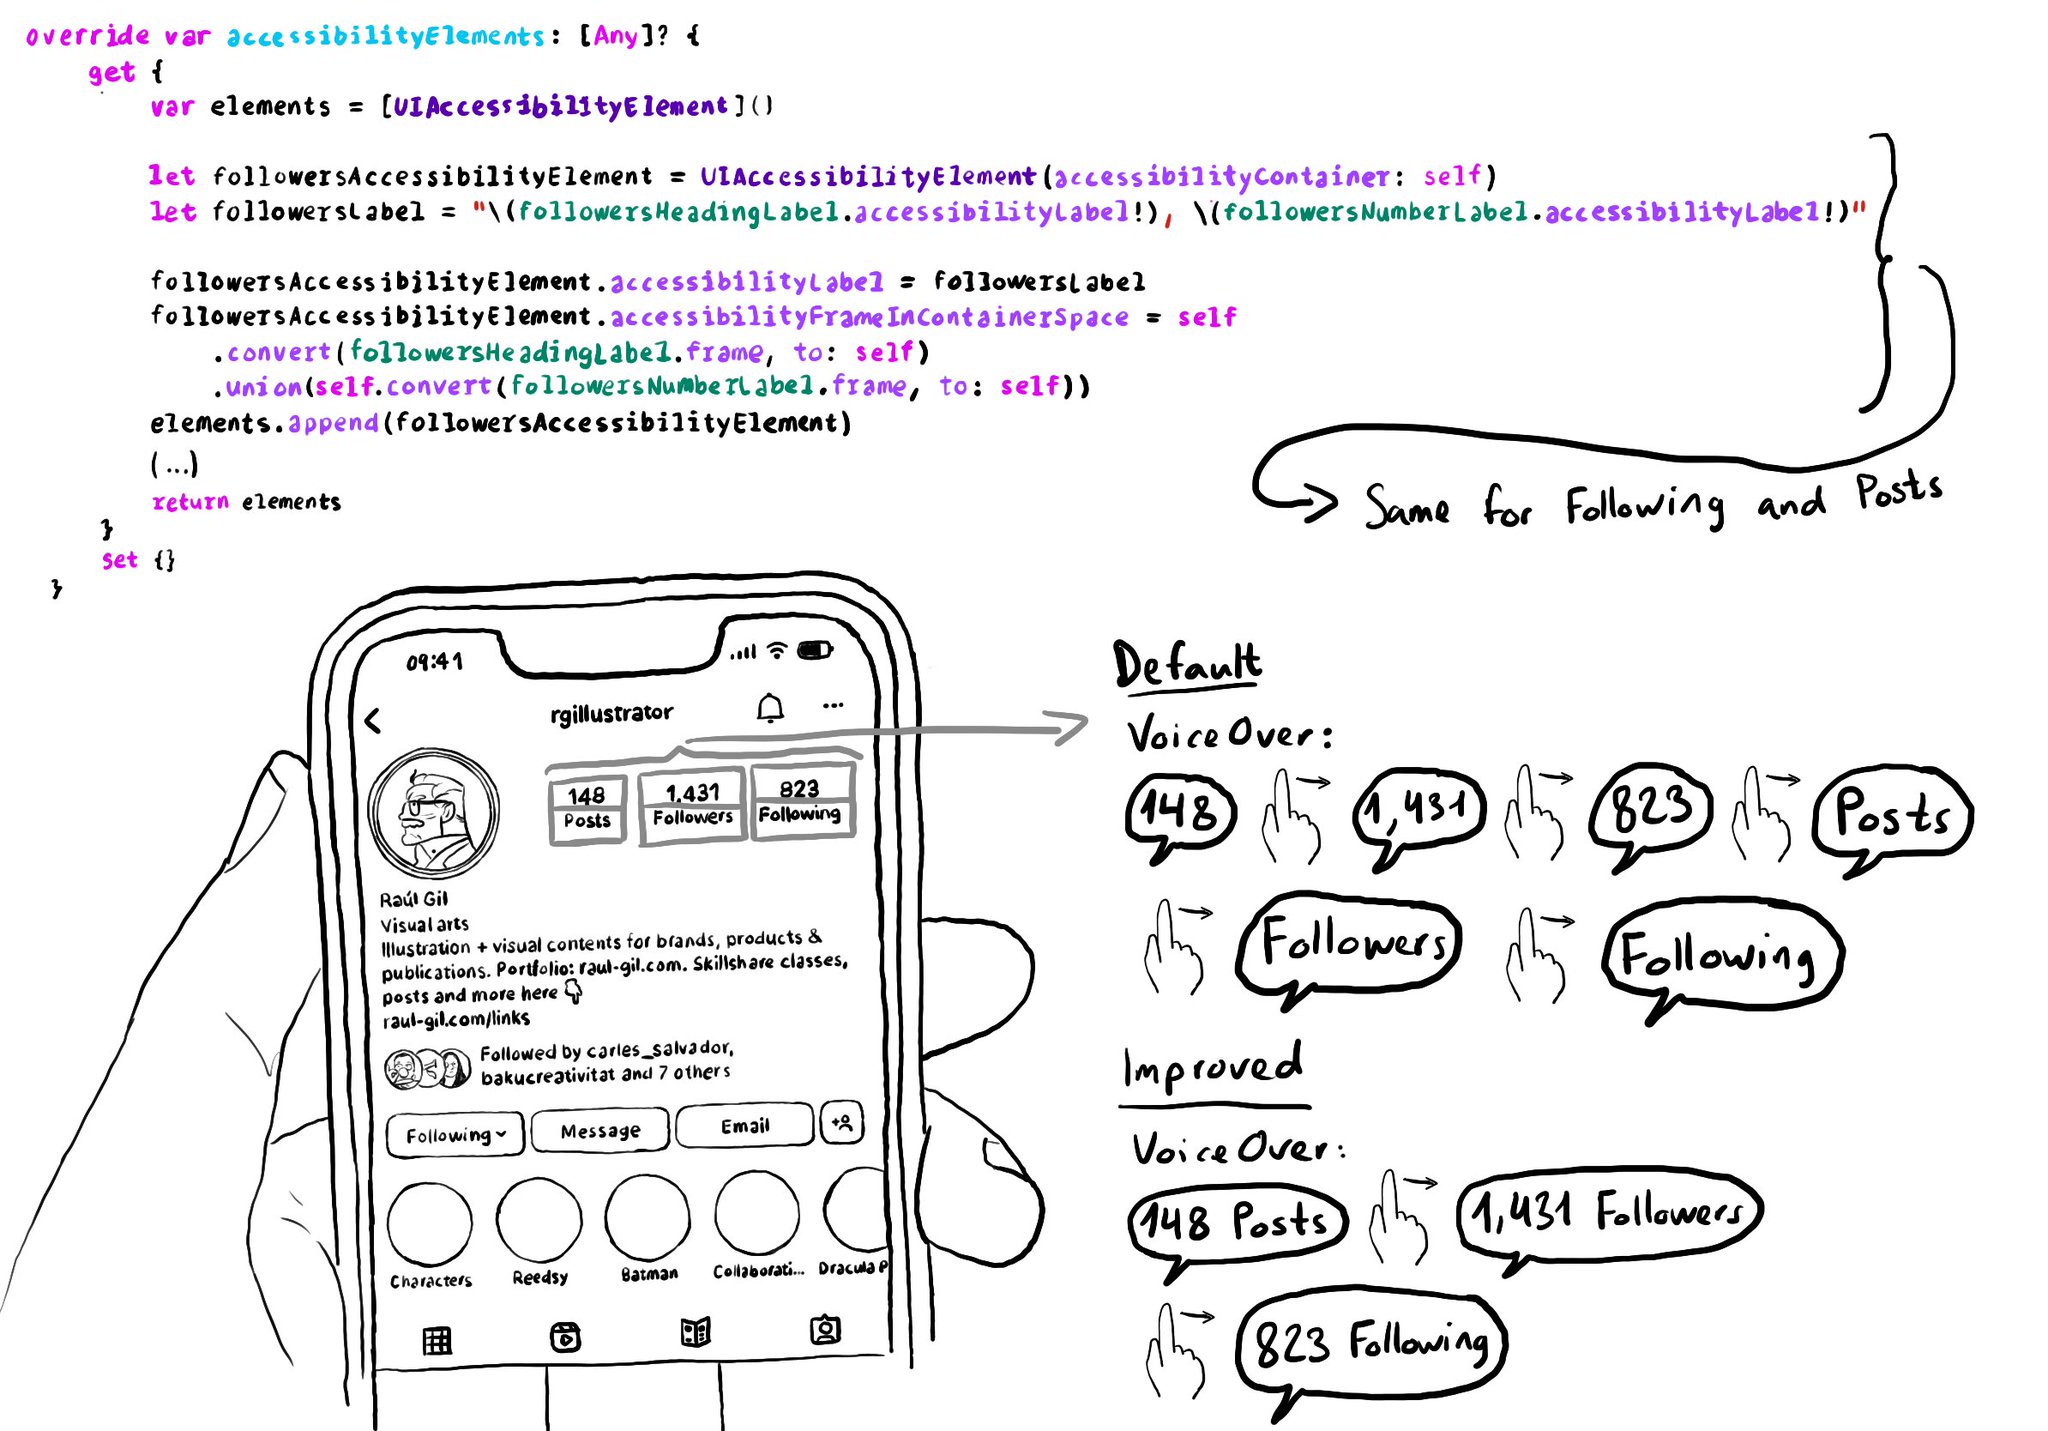 override var accessibilityElements: [Any]? {
get {
var elements = [UIAccessibilityElement]()
let followersAccessibilityElement = UIAccessibilityElement(accessibilityContainer: self)
let followersLabel = "\(followersHeadingLabel.accessibilityLabel!), \(followersNumberLabel.accessibilityLabel!)"
followersAccessibilityElement.accessibilityLabel = followersLabel
followersAccessibilityElement.accessibilityFrameInContainerSpace = self
.convert(followersHeadingLabel.frame, to: self)
.union(self.convert(followersNumberLabel.frame, to: self))
elements.append(followersAccessibilityElement)
(...)
return elements
}
set {}
}
Same for Following and Posts
09:41
rgillustrator
148
Posts
1.431
Followers
823
Following
Raúl Gil
Visual arts
Illustration + visual contents for brands, products &
publications. Portfolio: raul-gil.com. Skillshare classes,
posts and more here
raul-gil.com/links
Followed by carles_salvador,
bakucreativitat and 7 others
Following
Message
Email
Characters
Reedsy
Batman
Collaborati...
Dracula P
Default
VoiceOver:
148
1,431
823
Posts
Followers
Following
Improved
VoiceOver:
148 Posts
1,431 Followers
823 Following